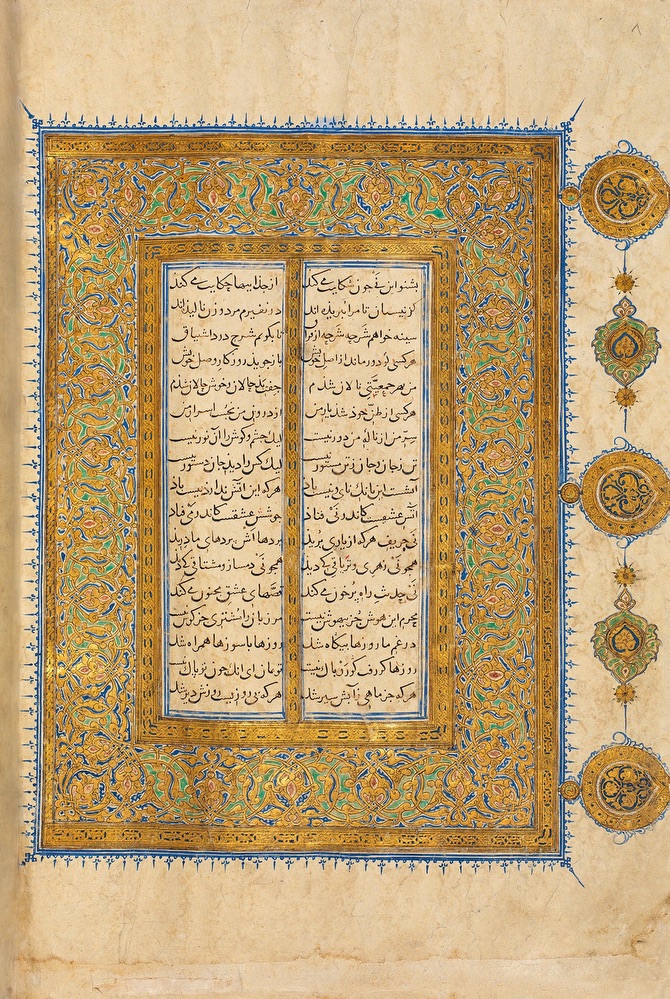 بشنو این نی چون شکایت می کند از جداییها حکایت می کند
کز نیستان تا مرا ببریده اند در نفیرم مرد و زن نالیده اند
سینه خواهم شرحه شرحه از فراق تا بگویم شرح درد اشتیاق
هر کسی کو دور ماند از اصل خویش باز جوید روزگار وصل خویش
من بهر جمعیتی نالان شدم جفت بدحالان و خوش حالان شدم
هر کسی از ظن خود شد یار من از درون من نجست اسرار من
سر من از ناله من دور نیست لیک چشم و گوش را آن نور نیست
تن ز جان و جان ز تن مستور نیست لیک کس را دید جان دستور نیست
آتشست این بانک نای و نیست باد هر که این آتش ندارد نیست باد
آتش عشقست کاندر نی فتاد جوشش عشقست کاندر می فتاد
نی حریف هر که از یاری برید پردهااش پردهای ما درید
همچو نی زهری و تریاقی که دید همچو نی دمساز و مشتاقی که دید
نی حدیث راه پر خون می کند قصهای عشق مجنون می کند
محرم این هوش جز بیهوش نیست مر زبان را مشتری جز گوش نیست
در غم ما روزها بیگاه شد روزها با سوزها همراه شد
روزها گر رفت گو رو باک نیست تو بمان ای آنک چون تو پاک نیست
هر که جز ماهی ز آبش سیر شد هر که بی روزیست روزش دیر شد